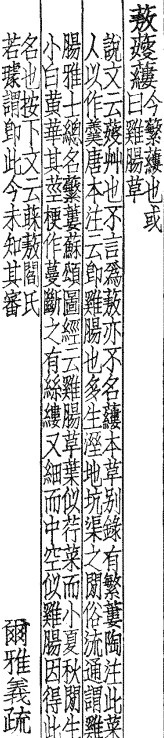 蔜䕅縷今蘩縷也或
曰雞腸草
說文云䕅艸也不言為蔜亦不名縷本草別錄有繁蔞陶注此菜
人以作羹唐本注云即雞腸也多生溼地坑渠之閒俗流通謂雞
腸雅士總名蘩蔞蘇頌圖經云雞腸草葉似荇菜而小夏秋閒生
小白黃華其莖梗作蔓斷之有絲縷又細而中空似雞腸因得此
名也按下文云蔜閻氏
若璩謂即此今未知其審
爾雅義疏